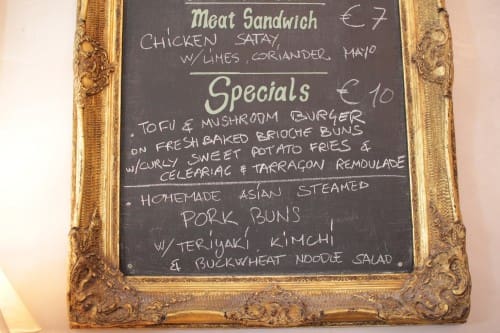 Meat Sandwich €7
CHICKEN SATAY,
W/LIMES, CORIANDER, MAYO
Specials €10
• TOFU & MUSHROOM BURGER
ON FRESHBAKED BRIOCHE BUNS
W/CURLY SWEET POTATO FRIES &
CELERIAC & TARRAGON REMOULADE
• HOMEMADE ASIAN STEAMED
PORK BUNS
W/ TERIYAKI, KIMCHI
& BUCKWHEAT NOODLE SALAD